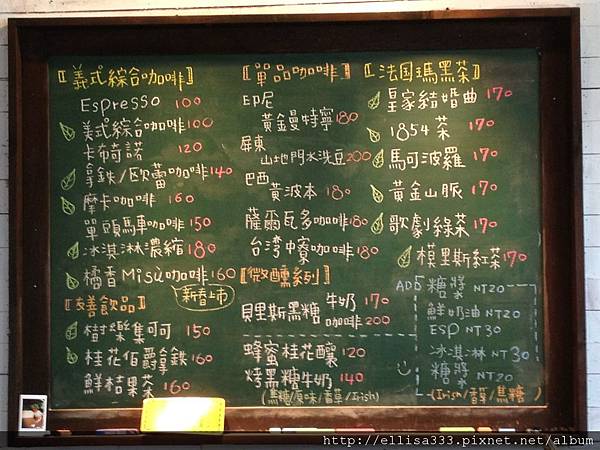 〖義式綜合咖啡〗
Espresso 100
美式綜合咖啡100
卡布奇諾 120
拿鉄/欧蕾咖啡140
摩卡咖啡 160
單頭馬車咖啡150
冰淇淋濃縮180
橘香Misu咖啡160
新春上市
〖友善飲品〗
樹樂集可可 150
桂花伯爵拿鉄160
鮮桔果茶 160
〖單品咖啡〗
印尼
黃金曼特寧180
屏東
山地門水洗豆200
巴西
黃波本 180
薩爾瓦多咖啡180
台灣中寮咖啡180
〖微醺系列〗
貝里斯黑糖 牛奶 170
咖啡 200
蜂蜜桂花釀120
烤黑糖牛奶 140
(焦糖/原味/香草/Irish)
〖法国瑪黑茶〗
皇家結婚曲 170
1854茶 170
馬可波羅 170
黃金山脈 170
歌劇綠茶 170
模里斯紅茶170
ADD 糖漿 NT20
鮮奶油 NT20
ESP NT30
冰淇淋 NT30
糖漿 NT20
(Irish/香草/焦糖)
http://ellisa333.pixnet.net/album